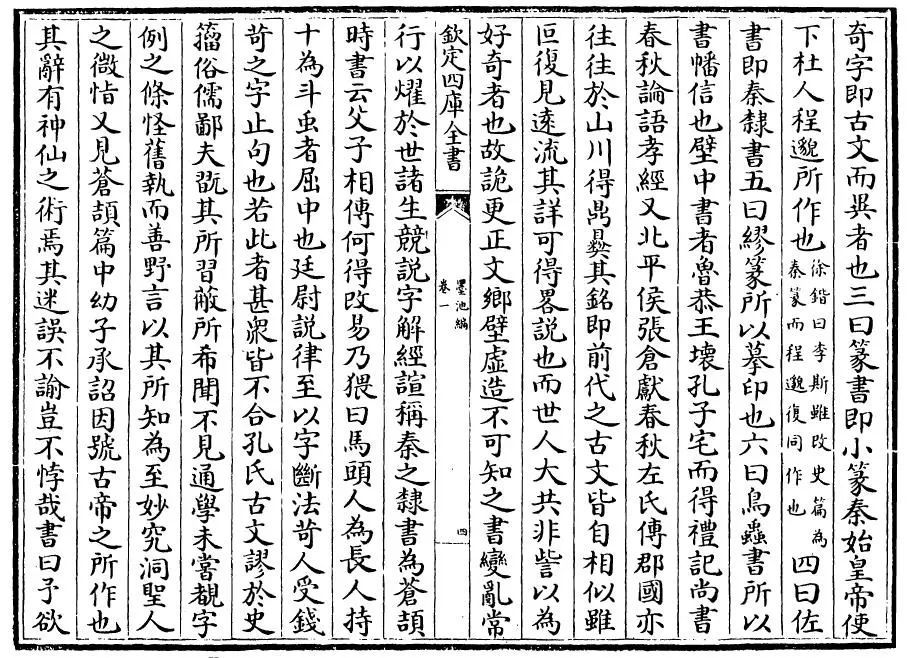 奇字即古文而異者也三曰篆書即小篆秦始皇帝使
下杜人程邈所作也徐鍇曰李斯雖改史篇為秦篆而程邈復同作也四曰佐
書即秦隸書五曰繆篆所以摹印也六曰鳥蟲書所以
書幡信也壁中書者魯恭王壞孔子宅而得禮記尚書
春秋論語孝經又北平侯張倉獻春秋左氏傳郡國亦
往往於山川得鼎彝其銘即前代之古文皆自相似雖
叵復見遠流其詳可得畧説也而世人大共非訾以為
好奇者也故詭更正文鄉壁虛造不可知之書變亂常
欽定四庫全書
墨池編
卷一
四
行以燿於世諸生競説字解經諠稱秦之隸書為蒼頡
時書云父子相傳何得改易乃猥曰馬頭人為長人持
十為斗虫者屈中也廷尉説律至以字斷法苛人受錢
苛之字止句也若此者甚衆皆不合孔氏古文謬於史
籀俗儒鄙夫翫其所習蔽所希聞不見通學未嘗覩字
例之條怪舊執而善野言以其所知為至妙究洞聖人
之微恉又見蒼頡篇中幼子承詔因號古帝之所作也
其辭有神仙之術焉其迷誤不諭豈不悖哉書曰予欲